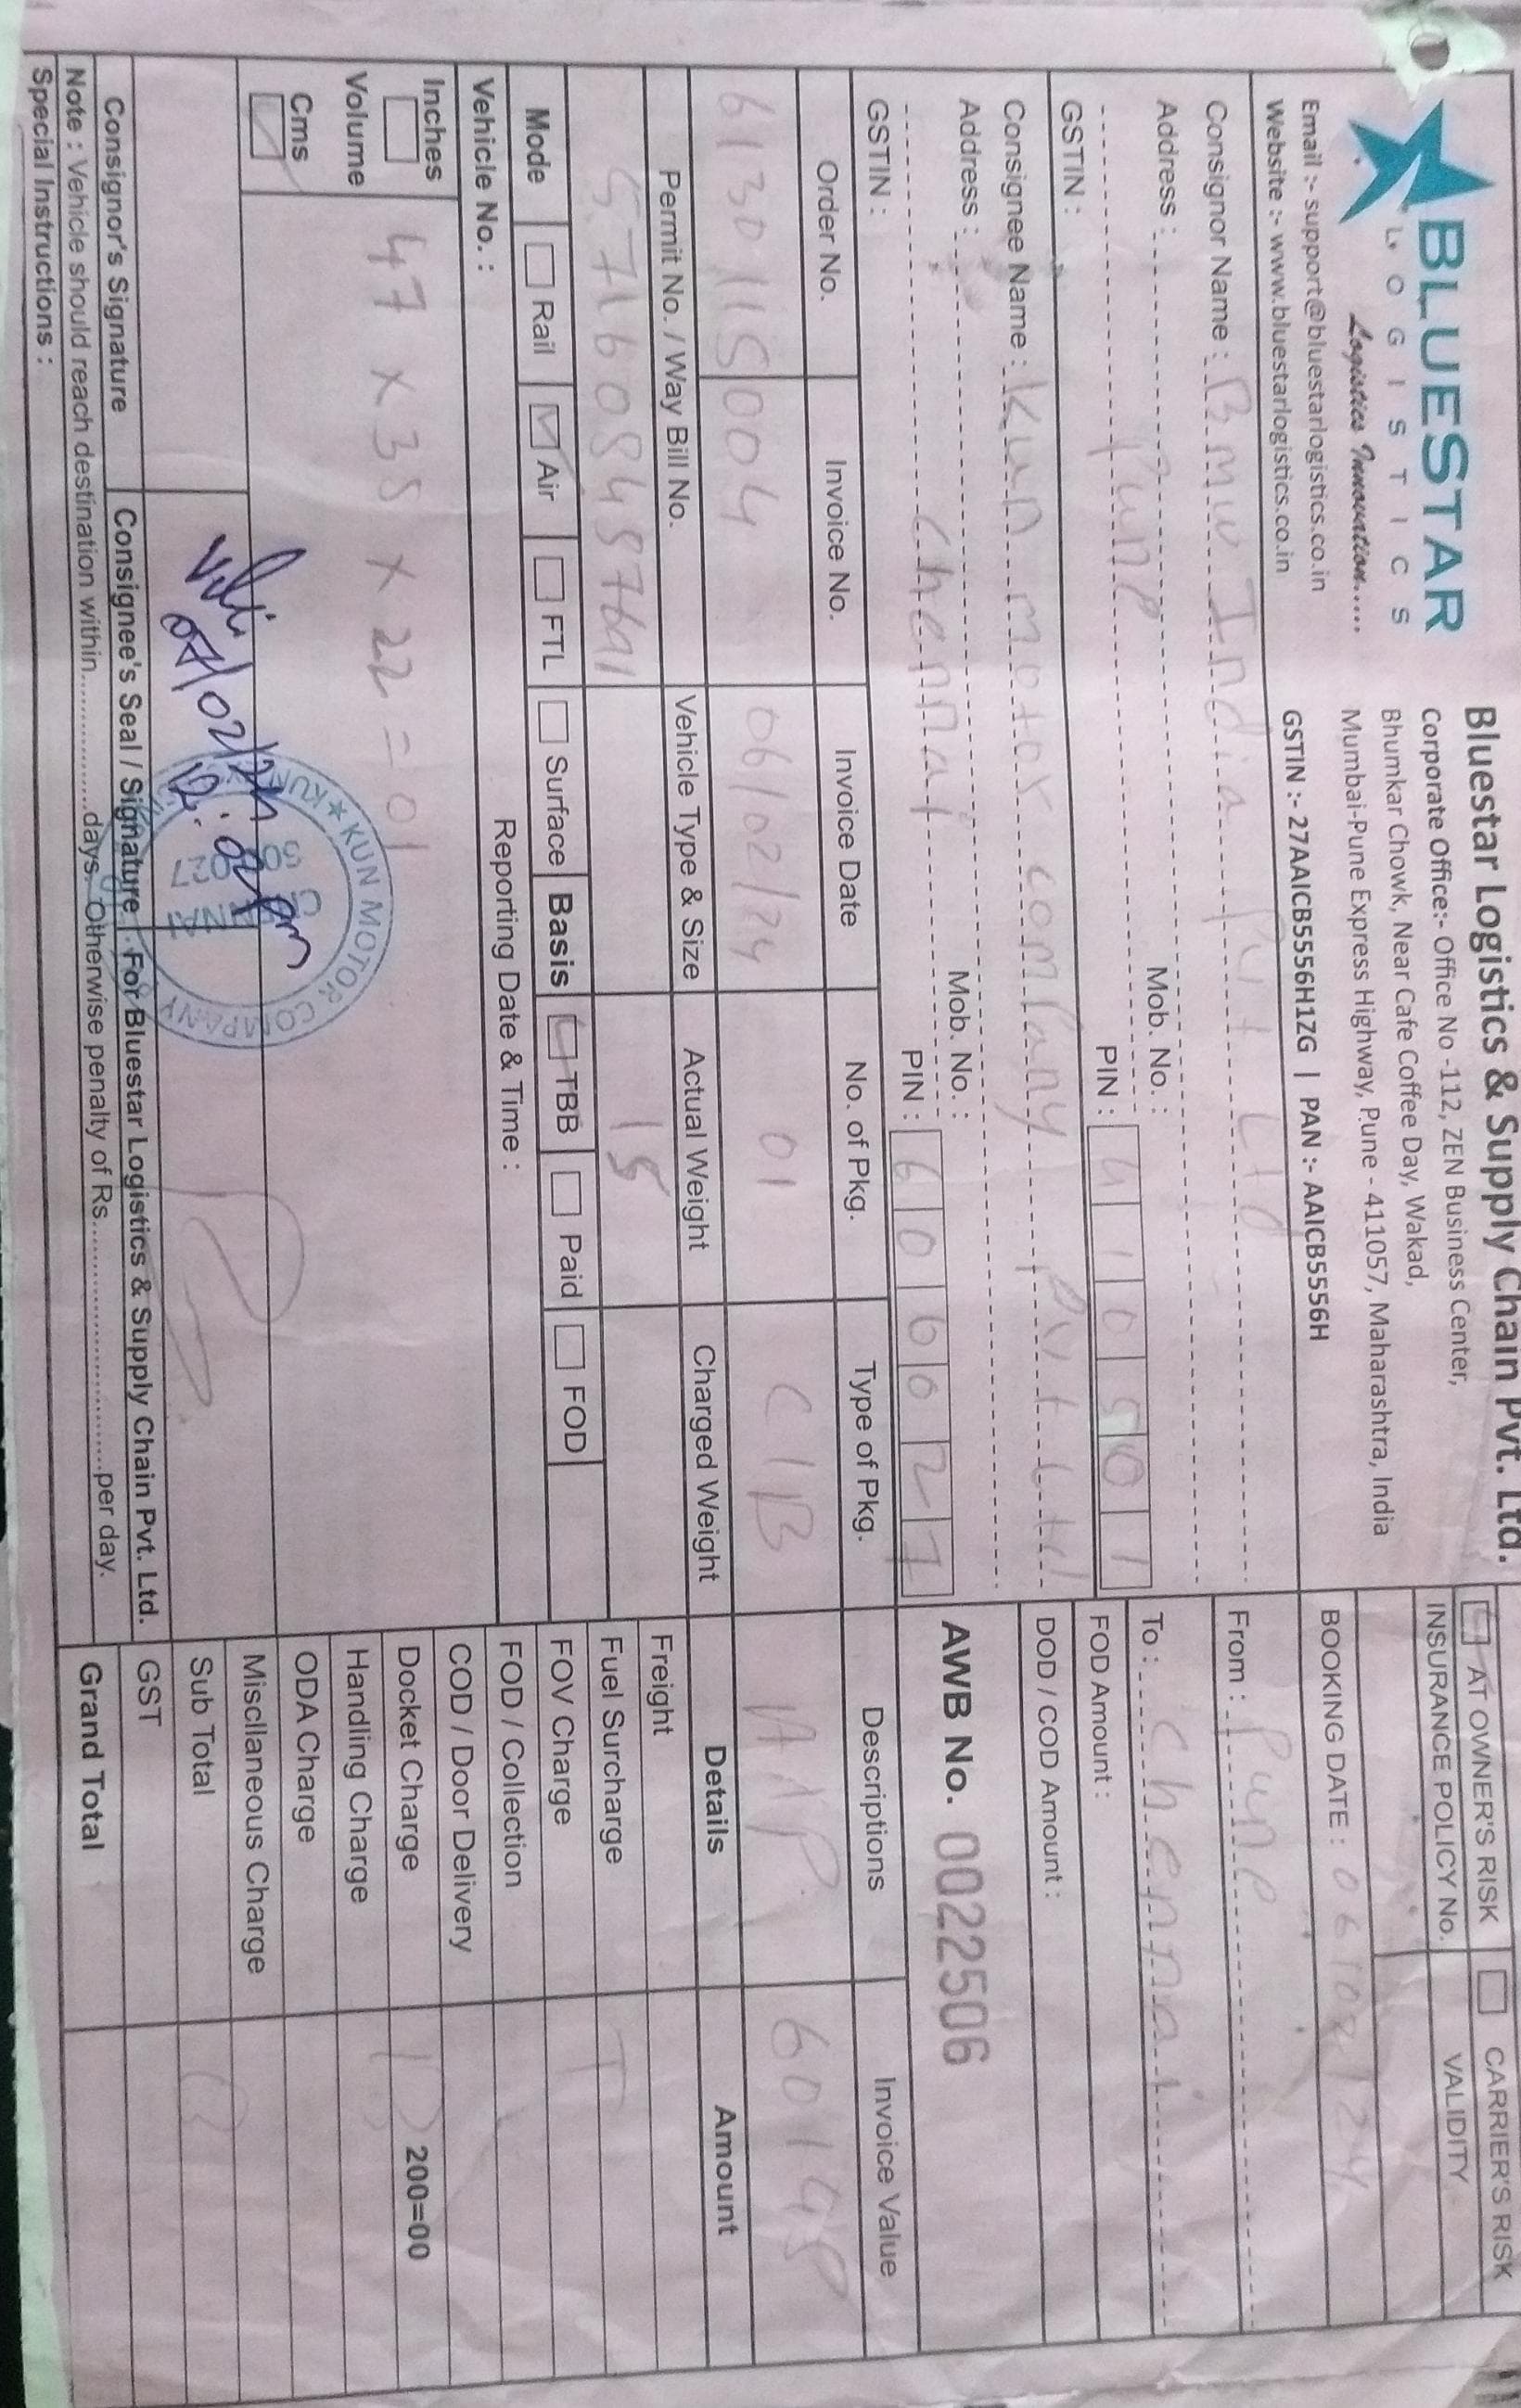 BLUESTAR
LOGISTICS
Logistics Innovation.....
Email :- support@bluestarlogistics.co.in
Website :- www.bluestarlogistics.co.in
Bluestar Logistics & Supply Chain Pvt. Ltd.
Corporate Office:- Office No -112, ZEN Business Center,
Bhumkar Chowk, Near Cafe Coffee Day, Wakad,
Mumbai-Pune Express Highway, Pune - 411057, Maharashtra, India
GSTIN :- 27AAICB5556H1ZG | PAN :- AAICB5556H
AT OWNER'S RISK CARRIER'S RISK
INSURANCE POLICY No. VALIDITY
BOOKING DATE : 06/02/24
Consignor Name : Bmw India Pvt Ltd
Address :
Mob. No. :
Pune
PIN : 410501
GSTIN :
From : Pune
To : Chennai
FOD Amount :
DOD / COD Amount :
Consignee Name : Kun motor company Pvt Ltd
Address :
Mob. No. :
Chennai
PIN : 600027
GSTIN :
AWB No. 0022506
Order No. Invoice No. Invoice Date No. of Pkg. Type of Pkg. Descriptions Invoice Value
6130115004 06/02/24 01 C/B
Permit No. / Way Bill No. Vehicle Type & Size Actual Weight Charged Weight Details Amount
15
Mode Rail Air FTL Surface Basis TBB Paid FOD
Vehicle No. : Reporting Date & Time :
Inches
Volume
Cms
47 x 35 x 22 = 01
Freight
Fuel Surcharge
FOV Charge
FOD / Collection
COD / Door Delivery
Docket Charge 200=00
Handling Charge
ODA Charge
Miscllaneous Charge
Sub Total
GST
Grand Total
KUN MOTOR COMPANY
CHENNAI
600 027
07/02/24
12:02 pm
Consignor's Signature Consignee's Seal / Signature For Bluestar Logistics & Supply Chain Pvt. Ltd.
Note : Vehicle should reach destination within.................days. Otherwise penalty of Rs..............................per day.
Special Instructions :